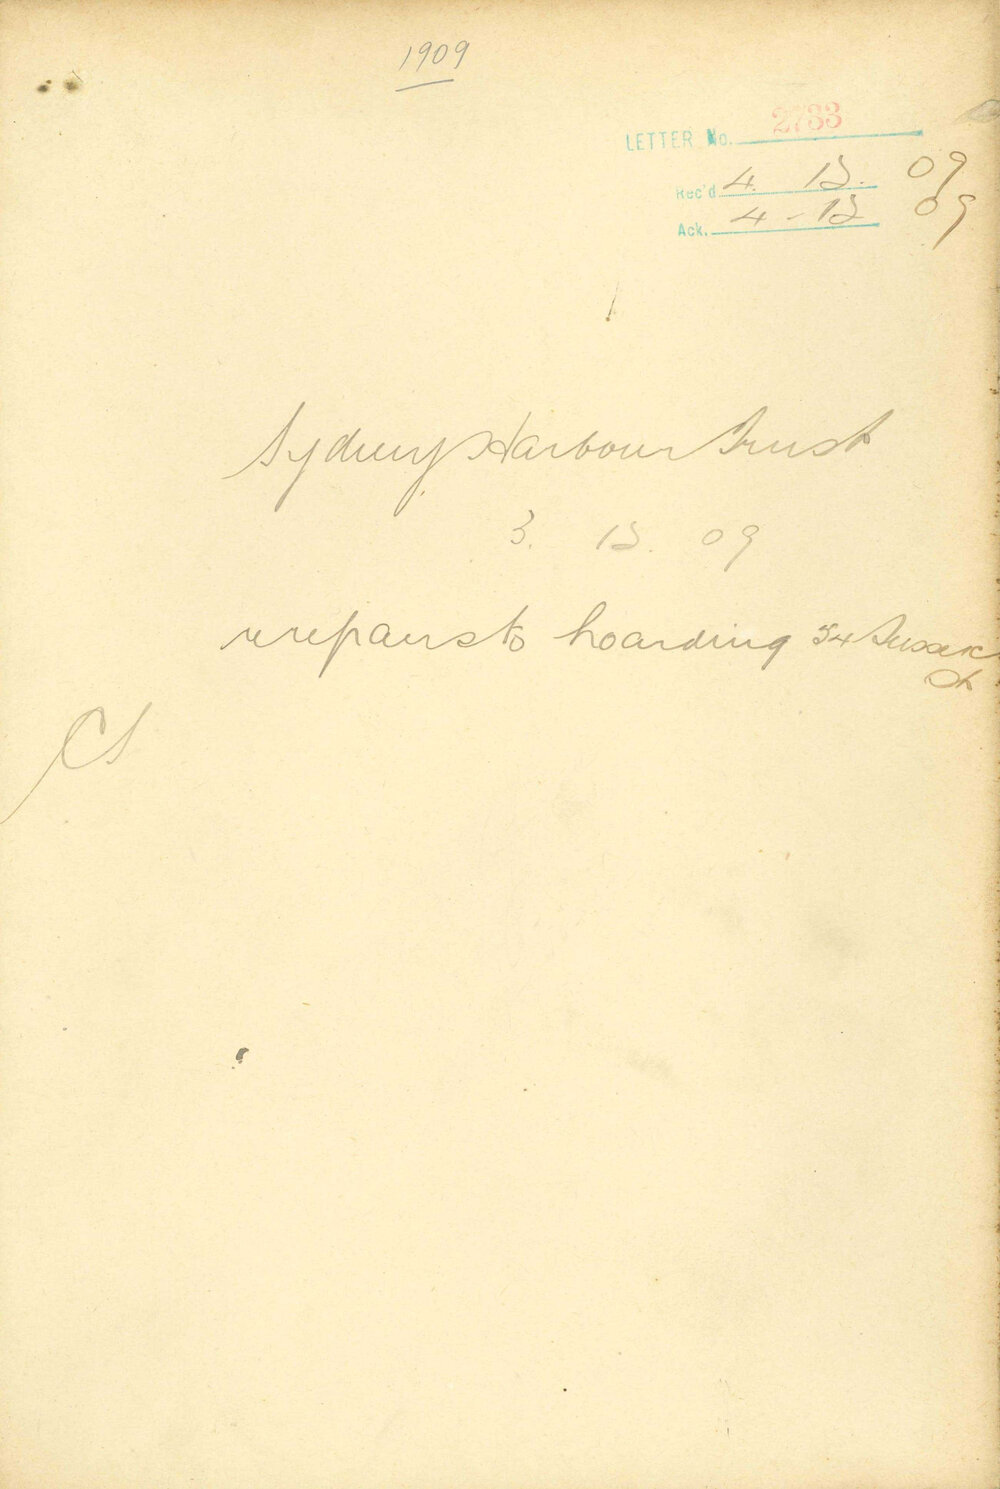 1909
LETTER No. 2733
Rec'd 4. 12. 09
Ack. 4-12 09
Sydney Harbour Trust
3. 12. 09
re repairs to hoarding 54 Sussex
St
CS